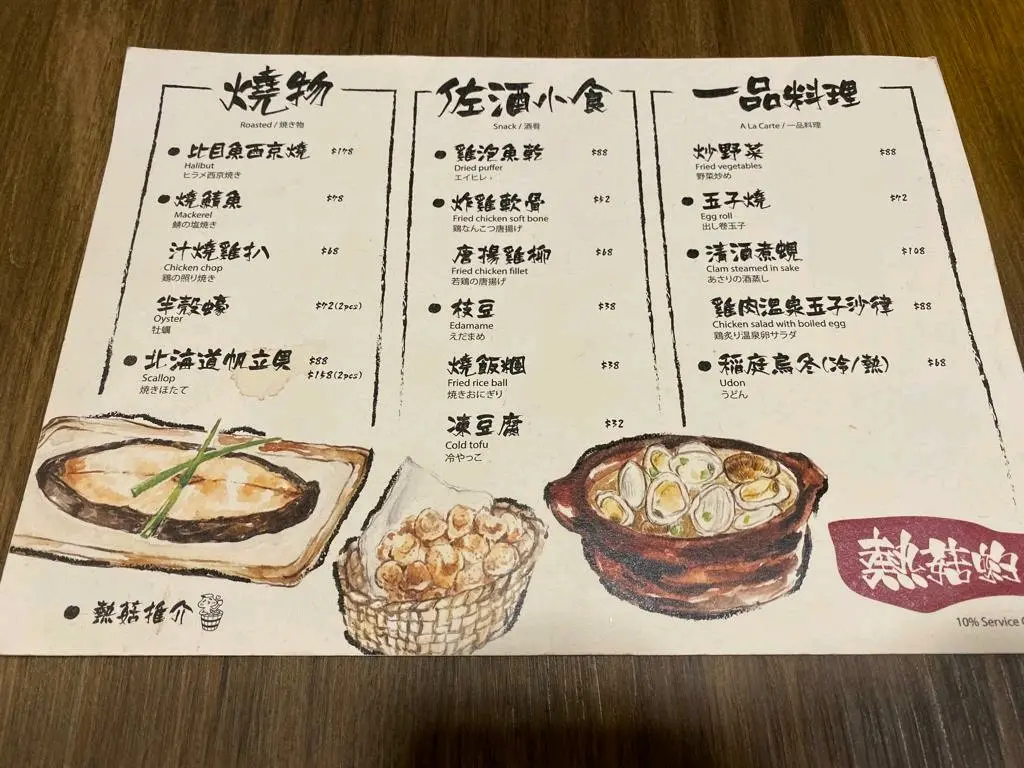 燒物
Roasted / 焼き物
比目魚西京燒 $178
Halibut
ヒラメ西京焼き
燒鯖魚 $78
Mackerel
鯖の塩焼き
汁燒雞扒 $68
Chicken chop
鶏の照り焼き
半殼蠔 $72(2pcs)
Oyster
牡蠣
北海道帆立貝 $88
$158(2pcs)
Scallop
焼きほたて
佐酒小食
Snack / 酒肴
雞泡魚乾 $88
Dried puffer
エイヒレ,
炸雞軟骨 $52
Fried chicken soft bone
鶏なんこつ唐揚げ
唐揚雞柳 $68
Fried chicken fillet
若鶏の唐揚げ
枝豆 $38
Edamame
えだまめ
燒飯糰 $38
Fried rice ball
焼きおにぎり
凍豆腐 $32
Cold tofu
冷やっこ
一品料理
A La Carte / 一品料理
炒野菜 $88
Fried vegetables
野菜炒め
玉子燒 $72
Egg roll
出し巻玉子
清酒煮蜆 $108
Clam steamed in sake
あさりの酒蒸し
雞肉溫泉玉子沙律 $88
Chicken salad with boiled egg
鶏炙り温泉卵サラダ
稻庭烏冬(冷/熱) $68
Udon
うどん
熱菇推介
熱菇
10% Service